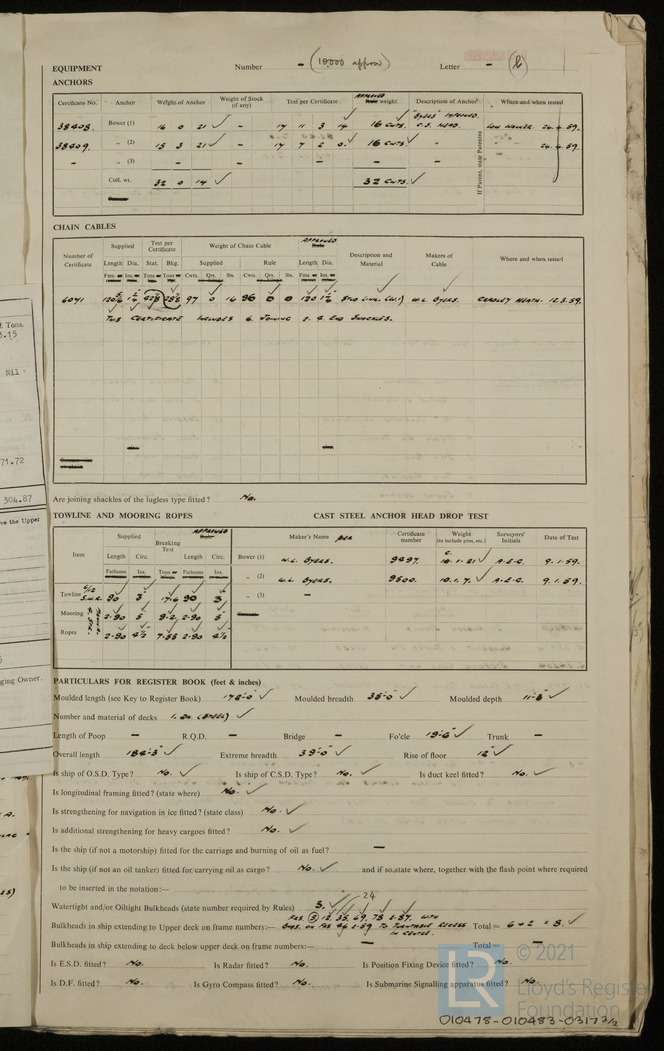 EQUIPMENT Number - (10,000 approx) Letter -
ANCHORS
Certificate No. Anchor Weight of Anchor Weight of Stock (if any) Test per Certificate APPROVED weight Description of Anchor When and when tested
If Patent, state Patentee
38408. Bower (1) 16 0 21 - 17 11 3 14 16 CWTS. C.S. HEAD. 24.4.59.
38409. „ (2) 15 3 21 - 17 7 2 0 16 CWTS. „ 24.4.59.
- „ (3) - - - - -
Coll. wt. 32 0 14 32 CWTS.
CHAIN CABLES
Number of Certificate Supplied Test per Certificate Weight of Chain Cable APPROVED Description and Material Makers of Cable Where and when tested
Length Dia. Stat. Bkg. Supplied Rule Length Dia.
Cwts. Qrs. lbs. Cwts. Qrs. lbs.
6041 97 0 16 96 0 0 120 W.L. BYERS. CRADLEY HEATH. 12.3.59.
THIS CERTIFICATE INCLUDES 6 JOINING & 2 END SHACKLES.
Are joining shackles of the lugless type fitted? No.
TOWLINE AND MOORING ROPES CAST STEEL ANCHOR HEAD DROP TEST
Item Supplied Breaking Test APPROVED Maker's Name Certificate number Weight (to include pins, etc.) Surveyors' Initials Date of Test
Length Circ. Length Circ.
Fathoms Ins. Tons Fathoms Ins.
Bower (1) W.L. BYERS. 9497. 10.1.21 A.E.C. 9.1.59.
„ (2) W.L. BYERS. 9500. 10.1.7. A.E.C. 9.1.59.
„ (3) -
Towline 90 3 17.6 90 3
Mooring 2-90 5 9.2 2-90 5
Ropes 2-90 4½ 7.55 2-90 4½
PARTICULARS FOR REGISTER BOOK (feet & inches)
Moulded length (see Key to Register Book) 172-0 Moulded breadth 38-0 Moulded depth 11-6
Number and material of decks 1. DK (STEEL)
Length of Poop - R.Q.D. - Bridge - Fo'cle 19-6 Trunk -
Overall length 184-3 Extreme breadth 39-0 Rise of floor 12
Is ship of O.S.D. Type? No. Is ship of C.S.D. Type? No. Is duct keel fitted? No.
Is longitudinal framing fitted? (state where) No.
Is strengthening for navigation in ice fitted? (state class) No.
Is additional strengthening for heavy cargoes fitted? No.
Is the ship (if not a motorship) fitted for the carriage and burning of oil as fuel? -
Is the ship (if not an oil tanker) fitted for carrying oil as cargo? No. and if so state where, together with the flash point where required
to be inserted in the notation:—
Watertight and/or Oiltight Bulkheads (state number required by Rules) 3. 24
FRS. 5, 12, 35, 69, 78 & 87. WITH
Bulkheads in ship extending to Upper deck on frame numbers:— BHDS. ON FRS 46 & 59 TO TURNTABLE RECESS Total = 6 + 2 = 8.
IN CENTRE.
Bulkheads in ship extending to deck below upper deck on frame numbers:— - Total -
Is E.S.D. fitted? No. Is Radar fitted? No. Is Position Fixing Device fitted? No.
Is D.F. fitted? No. Is Gyro Compass fitted? No. Is Submarine Signalling apparatus fitted? No
© 2021
LR
Lloyd's Register
Foundation
010478-010483-0317 2/2
Tons.
Nil
71.72
304.87
ve the Upper
ging Owner.